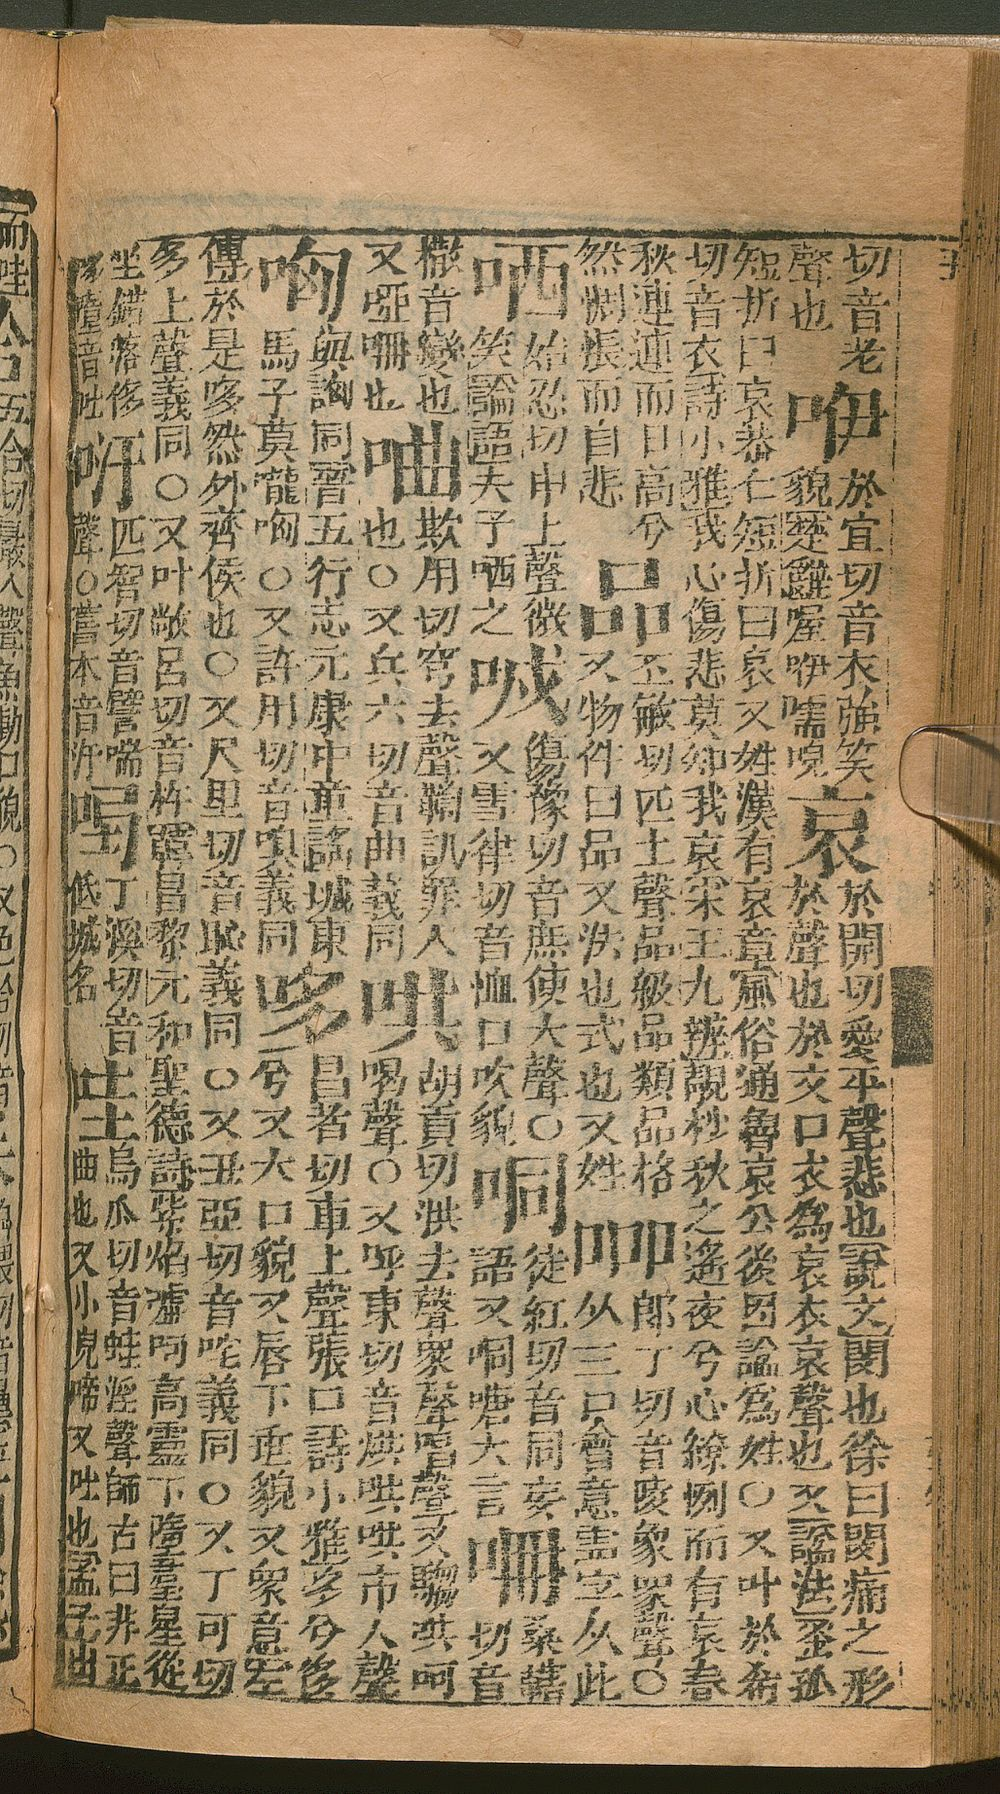 切音老
聲也
咿
於宜切音衣強笑
貌楚辭喔咿嚅唲
哀
於開切愛平聲悲也說文閔也徐曰閔痛之形
於聲也於文口衣為哀衣哀聲也又諡法蚤孤
短折曰哀恭仁短折曰哀又姓漢有哀章風俗通魯哀公後因諡為姓○又叶於希
切音衣詩小雅我心傷悲莫知我哀宋玉九辨靚杪秋之遙夜兮心繚悷而有哀春
秋逴逴而日高兮
然惆悵而自悲
品
丕敏切匹上聲品級品類品格
又物件曰品又法也式也又姓
㗊
郎丁切音夌象眾聲○
从三口會意靈字从此
哂
始忍切申上聲微
笑論語夫子哂之
㖅
傷豫切音庶使犬聲○
又雪律切音恤口吹貌
哃
徒紅切音同妄
語又哃嘡大言
𠱥
桑葛
切音
撒音變也
又啞𠱥也
𠴊
欺用切穹去聲鞫訊罪人
也○又丘六切音曲義同
哄
胡貢切洪去聲眾聲唱聲又騶哄呵
喝聲○又呼東切音烘哄哄市人聲
哅
與詾同晉五行志元康中童謠城東
馬子莫嚨哅○又許用切音嗅義同
哆
昌者切車上聲張口詩小雅哆兮侈
兮又大口貌又唇下垂貌又眾意左
傳於是哆然外齊侯也○又尺里切音恥義同○又丑亞切音咤義同○又丁可切
多上聲義同○又叶敞呂切音杵韓昌黎元和聖德詩紫焰噓呵高靈下墮羣星從
坐錯落侈
哆墮音吐
匹智切音譬喘
聲○舊本音
丁溪切音
低城名
哇
烏瓜切音蛙淫聲師古曰非正
曲也又小兒啼又吐也孟子出
而哇
五合切
入聲魚動口貌○又